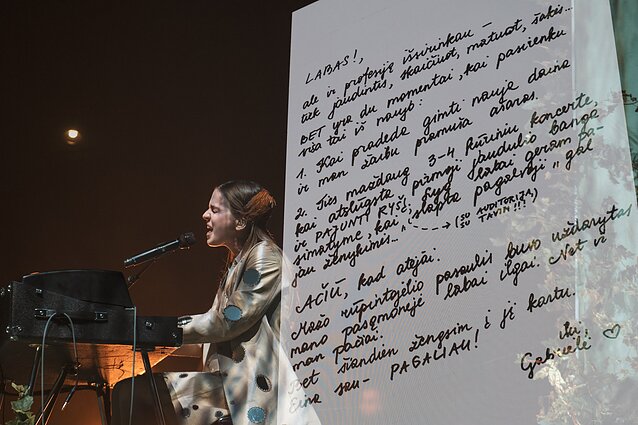 LABAS!,
ale ir profesiją išsirinkau –
tiek jaudintis, skaičiuot, matuot, šokis...
BET yra du momentai, kai pasirenku
visa tai iš naujo:
1. Kai pradeda gimti nauja daina
ir man žaibu pramuša ašaros.
2. Ties maždaug 3-4 kūriniu koncerte,
kai atslūgsta pirmoji jaudulio banga
ir PAJUNTI RYŠĮ. Lyg labai geram pa-
simatyme, kai slapta pagalvoji „gal
jau ženykimės..." (SU AUDITORIJA)
(SU TAVIM!!!)
AČIŪ, kad atėjai.
Mažo rūpintojėlio pasaulis buvo uždarytas
mano pasąmonėje labai ilgai. Net ir
man pačiai.
Bet šiandien žengsim į jį kartu.
Eina sau – PAGALIAU!
iki,
Gabrielė ♡